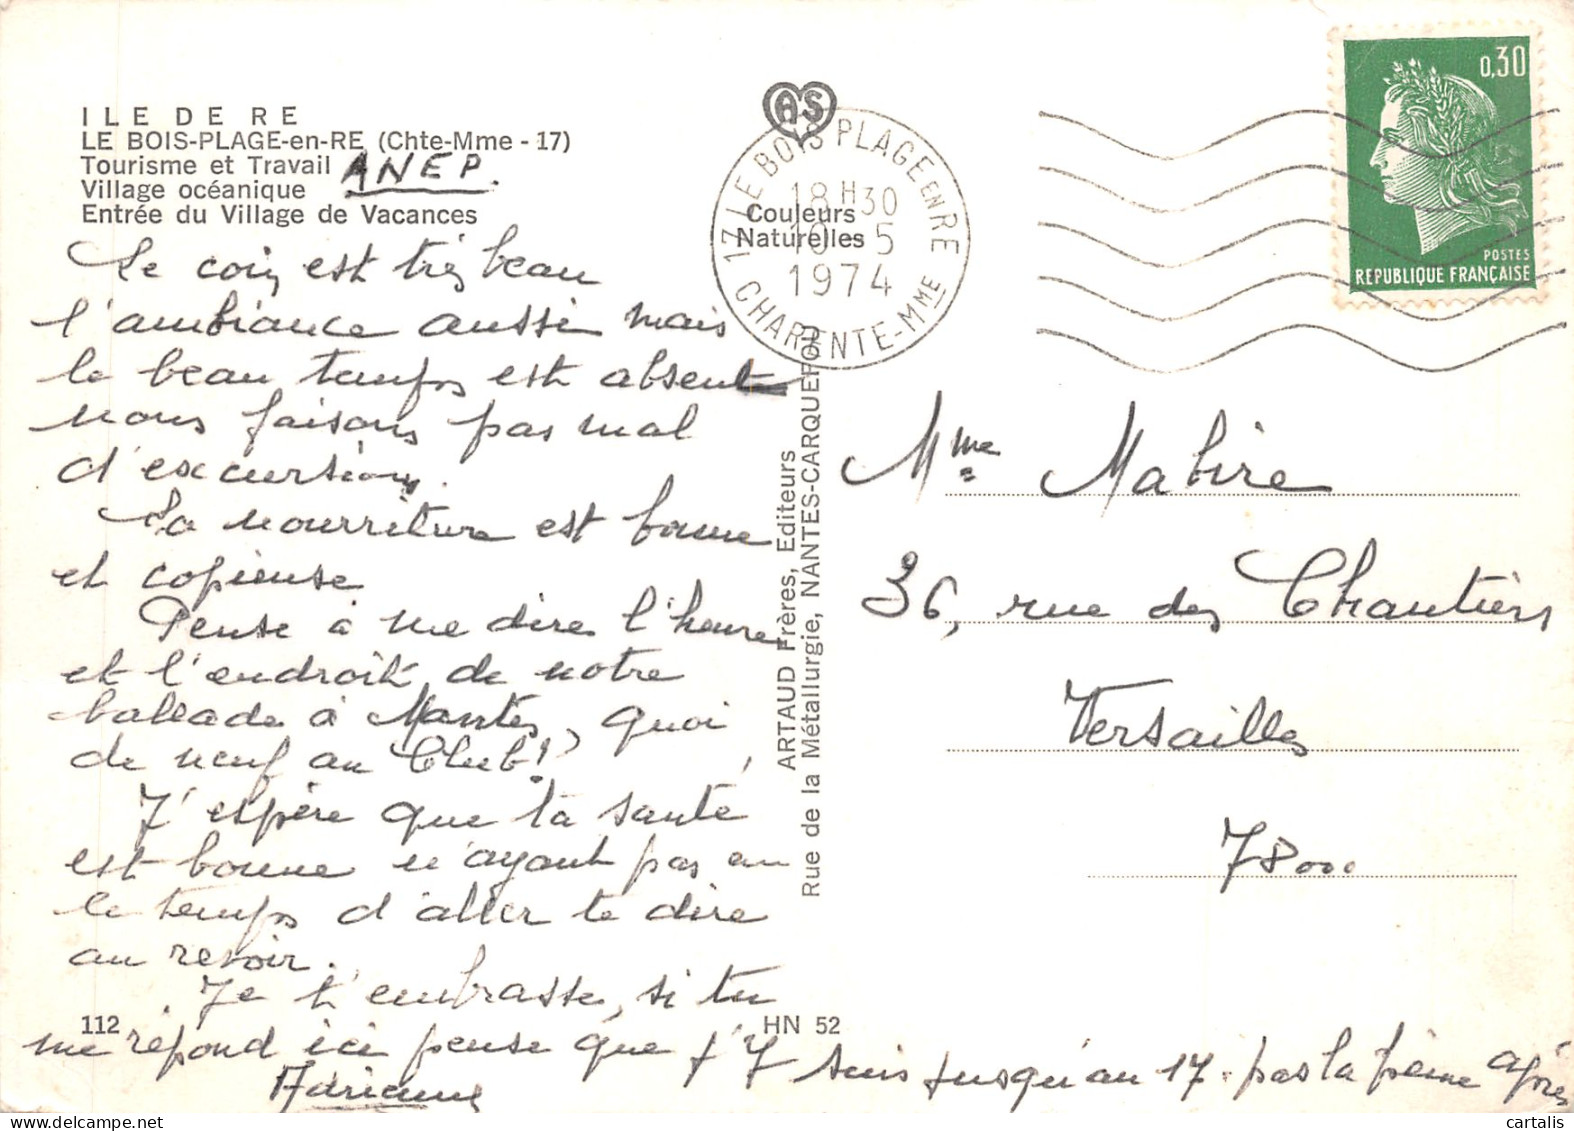 ILE DE RE
LE BOIS-PLAGE-en-RE (Chte-Mme - 17)
Tourisme et Travail ANEP.
Village océanique
Entrée du Village de Vacances
Le coin est très beau
l'ambiance aussi mais
le beau temps est absent
nous faisons pas mal
d'excursions.
La nourriture est bonne
et copieuse
Pense à me dire l'heure
et l'endroit de notre
ballade à Mantes, quoi
de neuf au Club!?
J'espère que ta santé
est bonne n'ayant pas eu
le temps d'aller te dire
au revoir.
Je t'embrasse, si tu
me répond ici pense que j'y suis jusqu'au 17. pas la peine après
112
HN 52
AS
17 LE BOIS PLAGE EN RE
18H30
10-5
1974
CHARENTE-MME
Couleurs
Naturelles
ARTAUD Frères, Editeurs
Rue de la Métallurgie, NANTES-CARQUEFOU
0,30
POSTES
REPUBLIQUE FRANÇAISE
Mme Mabire
36, rue des Chantiers
Versailles
78000
cartalis